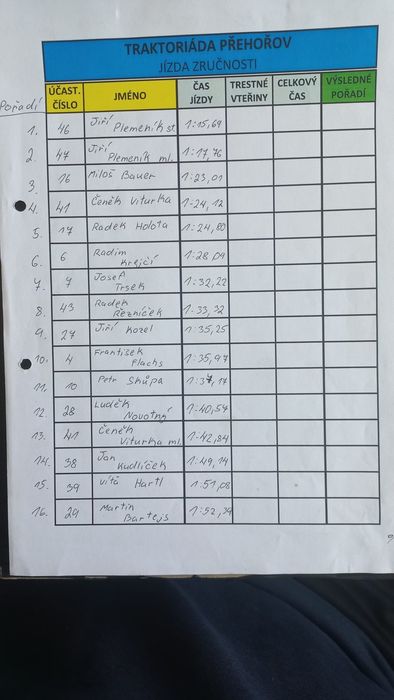 TRAKTORIÁDA PŘEHOŘOV
JÍZDA ZRUČNOSTI
Pořadí ÚČAST. ČÍSLO JMÉNO ČAS JÍZDY TRESTNÉ VTEŘINY CELKOVÝ ČAS VÝSLEDNÉ POŘADÍ
1. 46 Jiří Plemeník st. 1:15,69
2. 47 Jiří Plemeník ml. 1:17,76
3. 16 Miloš Bauer 1:23,01
4. 41 Čeněk Viturka 1:24,12
5. 17 Radek Holota 1:24,80
6. 6 Radim Krejčí 1:28,09
7. 7 Josef Trsek 1:32,22
8. 43 Radek Řezníček 1:33,32
9. 27 Jiří Kozel 1:35,25
10. 4 František Flachs 1:35,97
11. 10 Petr Skůpa 1:37,17
12. 28 Luděk Novotný 1:40,54
13. 41 Čeněk Viturka ml. 1:42,84
14. 38 Jan Kudlíček 1:49,14
15. 39 Víťa Hartl 1:51,08
16. 29 Martin Bartejs 1:52,34